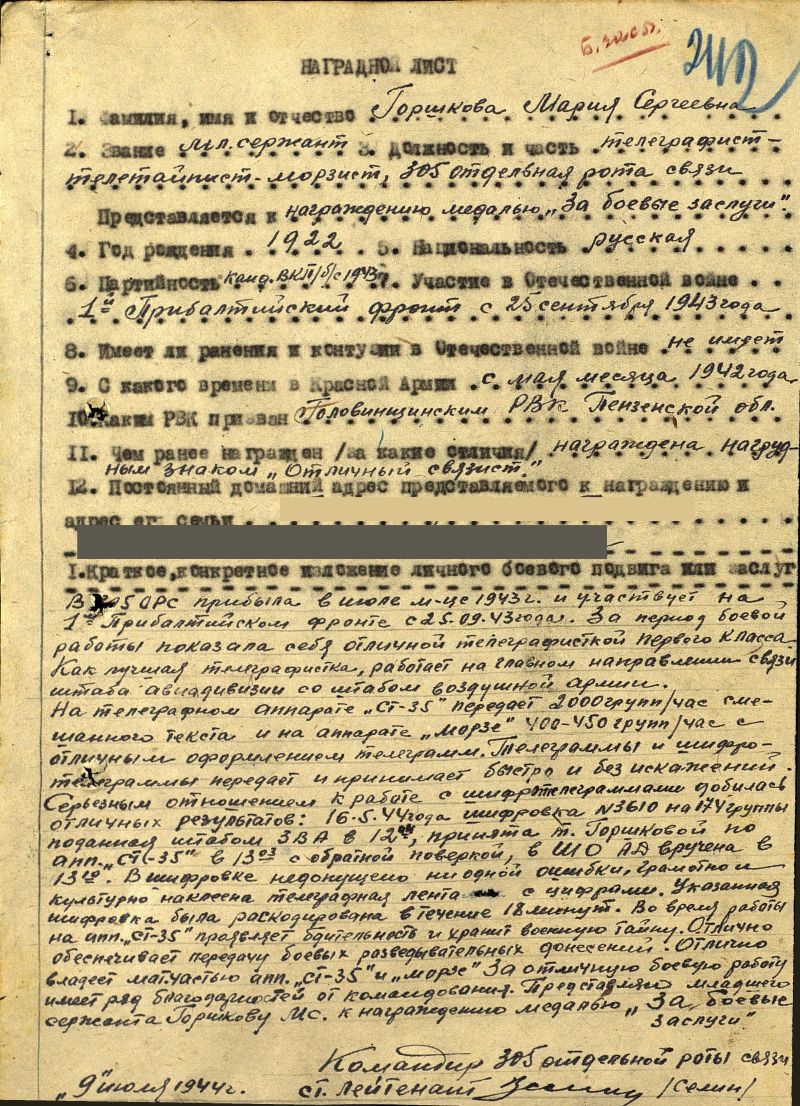 Б.30.05.
2412
НАГРАДНОЙ ЛИСТ
1. Фамилия, имя и отчество Горшкова Мария Сергеевна
2. Звание мл.сержант 3. Должность и часть телеграфист-
телетайпист-морзист, 305 отдельная рота связи
Представляется к награждению медалью „За боевые заслуги".
4. Год рождения 1922 5. Национальность русская
6. Партийность канд. ВКП/б/ с 1943 7. Участие в Отечественной войне
1й Прибалтийский фронт с 25 сентября 1943 года
8. Имеет ли ранения и контузии в Отечественной войне не имеет
9. С какого времени в Красной Армии с мая месяца 1942 года
10. Каким РВК призван Головинщинским РВК Пензенской обл.
11. Чем ранее награжден /за какие отличия/ награждена нагруд-
ным знаком „Отличный связист."
12. Постоянный домашний адрес представляемого к награждению и
адрес его семьи
I. Краткое, конкретное изложение личного боевого подвига или заслуг
В 305 ОРС прибыла в июле м-це 1943 г. и участвует на
1м Прибалтийском фронте с 25.09.43 года. За период боевой
работы показала себя отличной телеграфисткой первого класса.
Как лучшая телеграфистка, работает на главном направлении связи
штаба авиадивизии со штабом воздушной армии.
На телеграфном аппарате „СТ-35" передает 2000 групп/час сме-
шанного текста и на аппарате „морзе" 400-450 групп/час с
отличным оформлением телеграмм. Телеграммы и шифро-
телеграммы передает и принимает быстро и без искажений.
Серьезным отношением к работе с шифрателеграммами добилась
отличных результатов: 16.5.44 года шифровка N3610 на 174 группы
поданная штабом 3ВА в 12, принята т. Горшковой по
апп. „СТ-35" в 13 03 с обратной поверкой, в ШО АД вручена в
13 10. В шифровке недопущено ни одной ошибки, грамотно и
культурно наклеена телеграфная лента с цифрами. Указанная
шифровка была раскодирована в течение 18 минут. Во время работы
на апп. „СТ-35" проявляет бдительность и хранит военную тайну. Отлично
обеспечивает передачу боевых разведывательных донесений. Отлично
владеет матчастью апп. „СТ-35" и „морзе" За отличную боевую работу
имеет ряд благодарностей от командования. Представляю младшего
сержанта Горшкову МС. к награждению медалью „За боевые
заслуги"
Командир 305 отдельной роты связи
„9" июля 1944 г. ст. лейтенант /Семин/